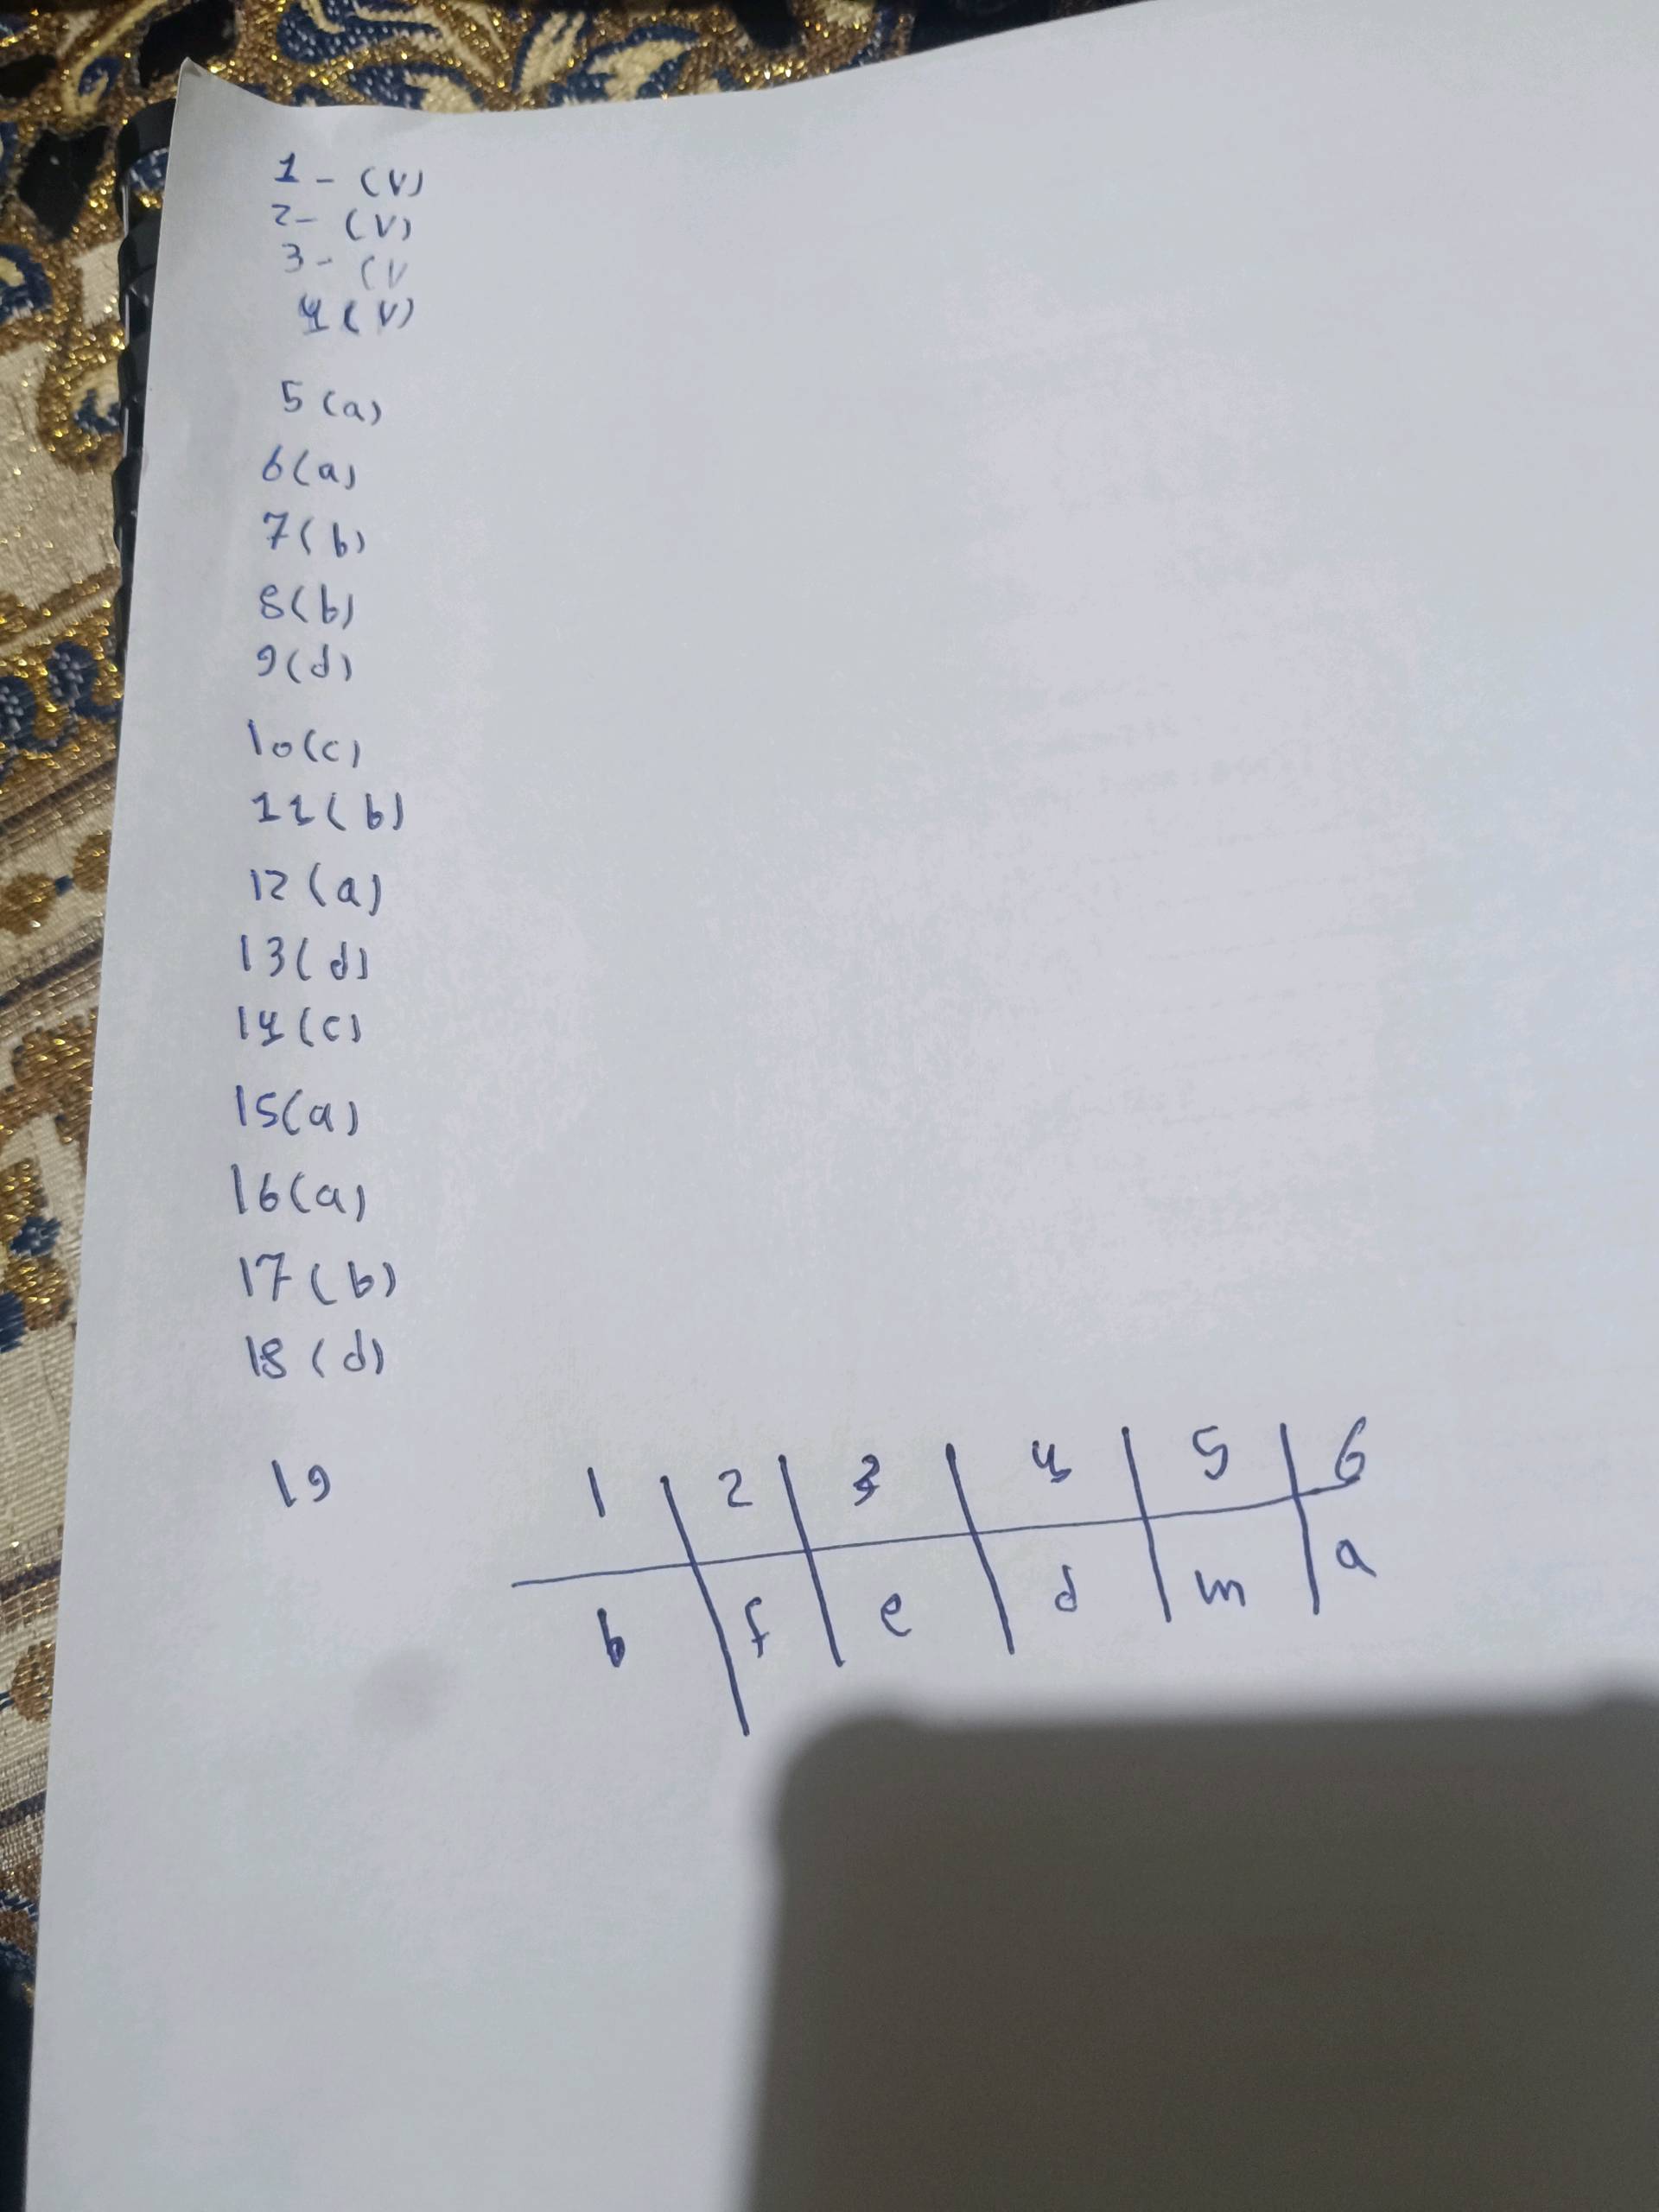 1 - (V)
2 - (V)
3 - (V
4 (V)
5 (a)
6 (a)
7 (b)
8 (b)
9 (d)
10 (c)
11 (b)
12 (a)
13 (d)
14 (c)
15 (a)
16 (a)
17 (b)
18 (d)
19 1 2 3 4 5 6
b f e d m a